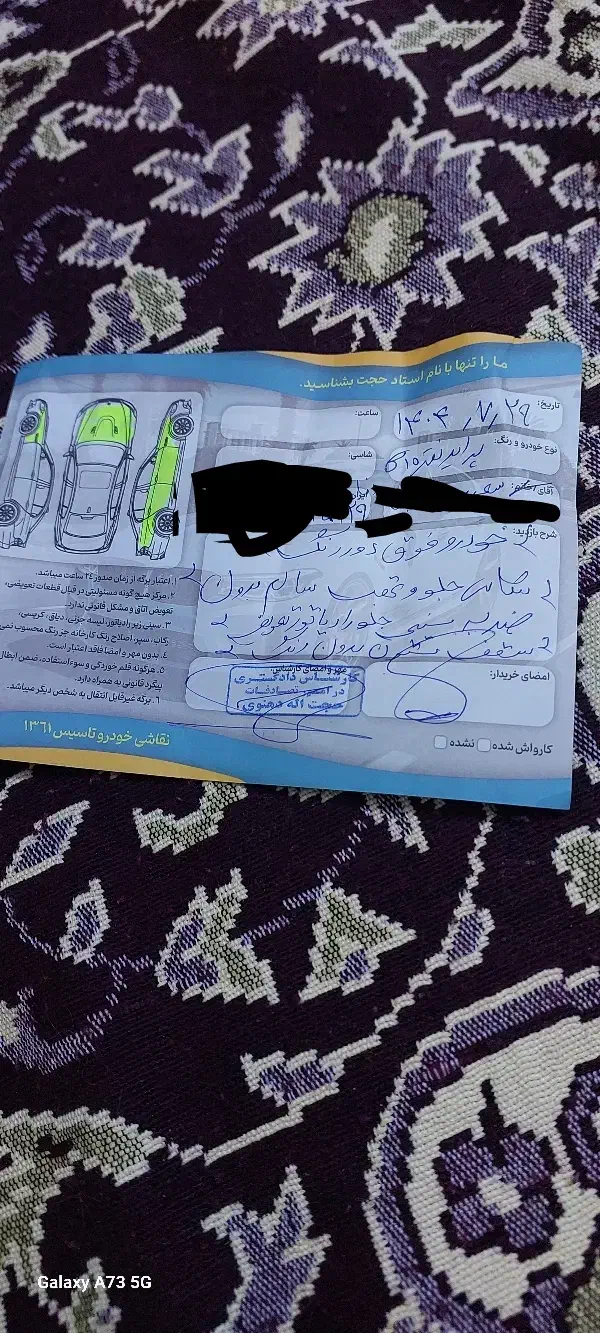 ما را تنها با نام استاد حجت بشناسید.
تاریخ: ۱۴۰۴/۷/۲۹
ساعت:
نوع خودرو و رنگ: پراید نقره‌ای
شاسی:
آقای/خانم:
شرح بازدید:
خودرو فوق دور رنگ
شاسی جلو و عقب سالم بدون
ضربه سینی جلو رادیاتور تعویض
سقف ستون بدون رنگ
۱. اعتبار برگه از زمان صدور ۲۴ ساعت میباشد.
۲. مرکز هیچ گونه مسئولیتی در قبال قطعات تعویضی،
تعویض اتاق و مشکل قانونی ندارد.
۳. سینی زیر رادیاتور، لیسه جزئی، دیاق، کریسی،
رکاب، سپر، اصلاح رنگ کارخانه جز رنگ محسوب نمی
۴. بدون مهر و امضا فاقد اعتبار است.
۵. هرگونه قلم خوردگی و سوء استفاده، ضمن ابطال
پیگرد قانونی به همراه دارد.
۶. برگه غیر قابل انتقال به شخص دیگر میباشد.
امضای خریدار:
مهر و امضای کارشناس:
کارشناس دادگستری
در امور تصادفات
حجت اله دهنوی
کارواش شده نشده
نقاشی خودرو تاسیس ۱۳۶۱
Galaxy A73 5G